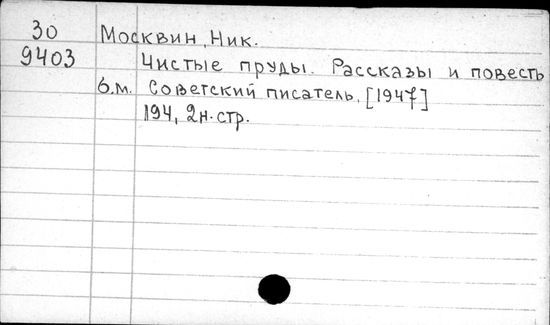 30 Москвин, Ник.
9403 Чистые пруды. Рассказы и повесть
б.м. Советский писатель, [1947]
194, 2н.стр.